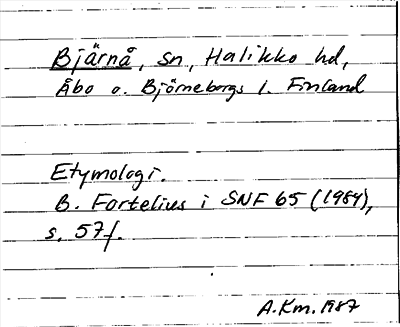 Bjärnå, sn, Halikko hd,
Åbo o. Björneborgs l. Finland
Etymologi.
B. Fortelius i SNF 65 (1984),
s. 57f.
A.Km. 1987